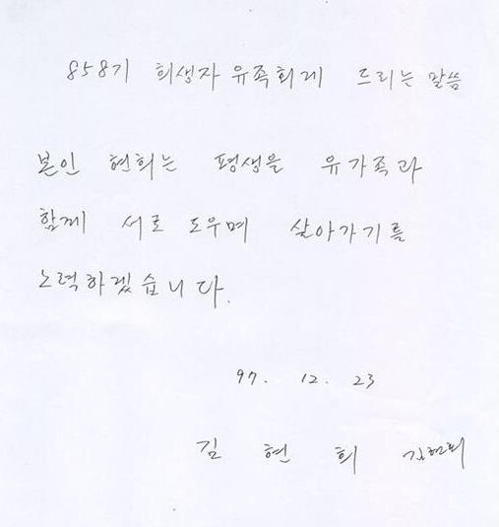 858기 희생자 유족회게 드리는 말씀
본인 현희는 평생을 유가족과
함께 서로 도우며 살아가기를
노력하겠습니다.
97. 12. 23
김 현 희 김현희